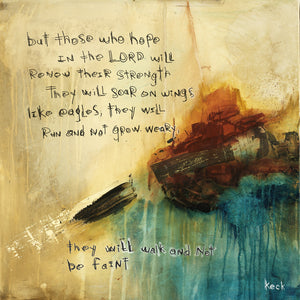 but those who hope
in the LORD will
Renew their strength
They will soar on wings
like eagles, they will
Run and not grow weary,
they will walk and not
be faint
Keck